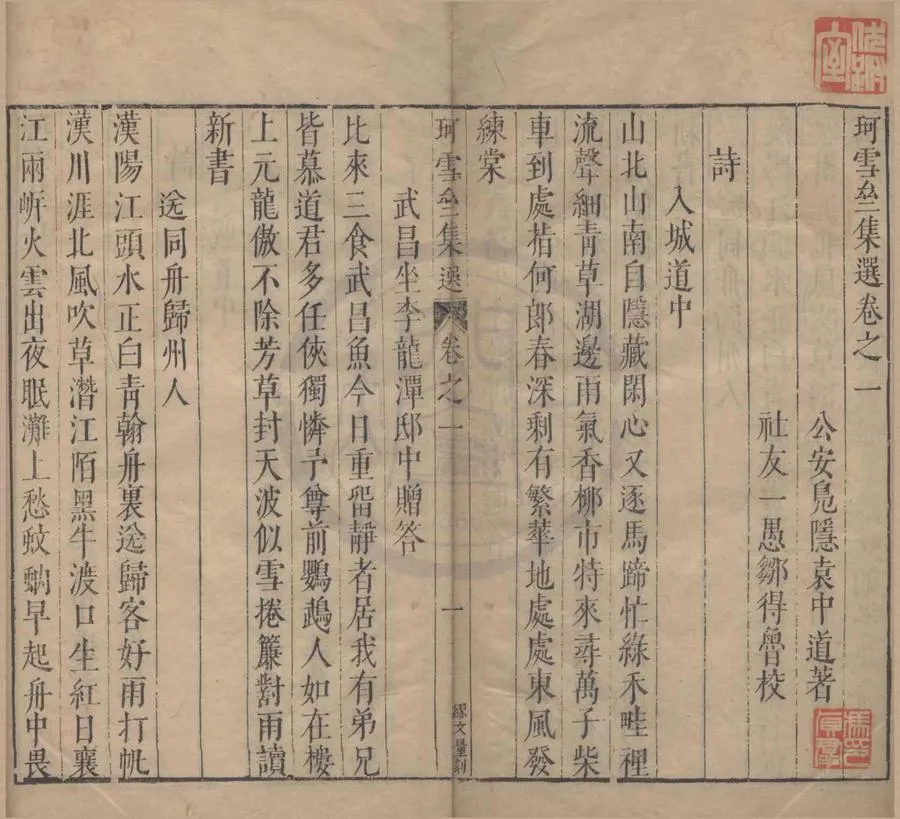 珂雪垒集選卷之一
公安鳧隱袁中道著
社友一愚鄒得魯校
詩
入城道中
山北山南自隱藏閑心又逐馬蹄忙綠禾畦裡
流聲細青草湖邊雨氣香柳市特來尋萬子柴
車到處㨖何郎春深剩有繁華地處處東風發
練棠
珂雪垒集選
卷之一
一
繆文量刻
武昌坐李龍潭邸中贈答
比來三食武昌魚今日重留靜者居我有弟兄
皆慕道君多任俠獨憐予尊前鸚鵡人如在樓
上元龍傲不除芳草封天波似雪捲簾對雨讀
新書
送同舟歸州人
漢陽江頭水正白青翰舟裏送歸客好雨打帆
漢川涯北風吹草潛江陌黑牛渡口生紅日襄
江兩岍火雲出夜眠灘上愁蚊蚋早起舟中畏